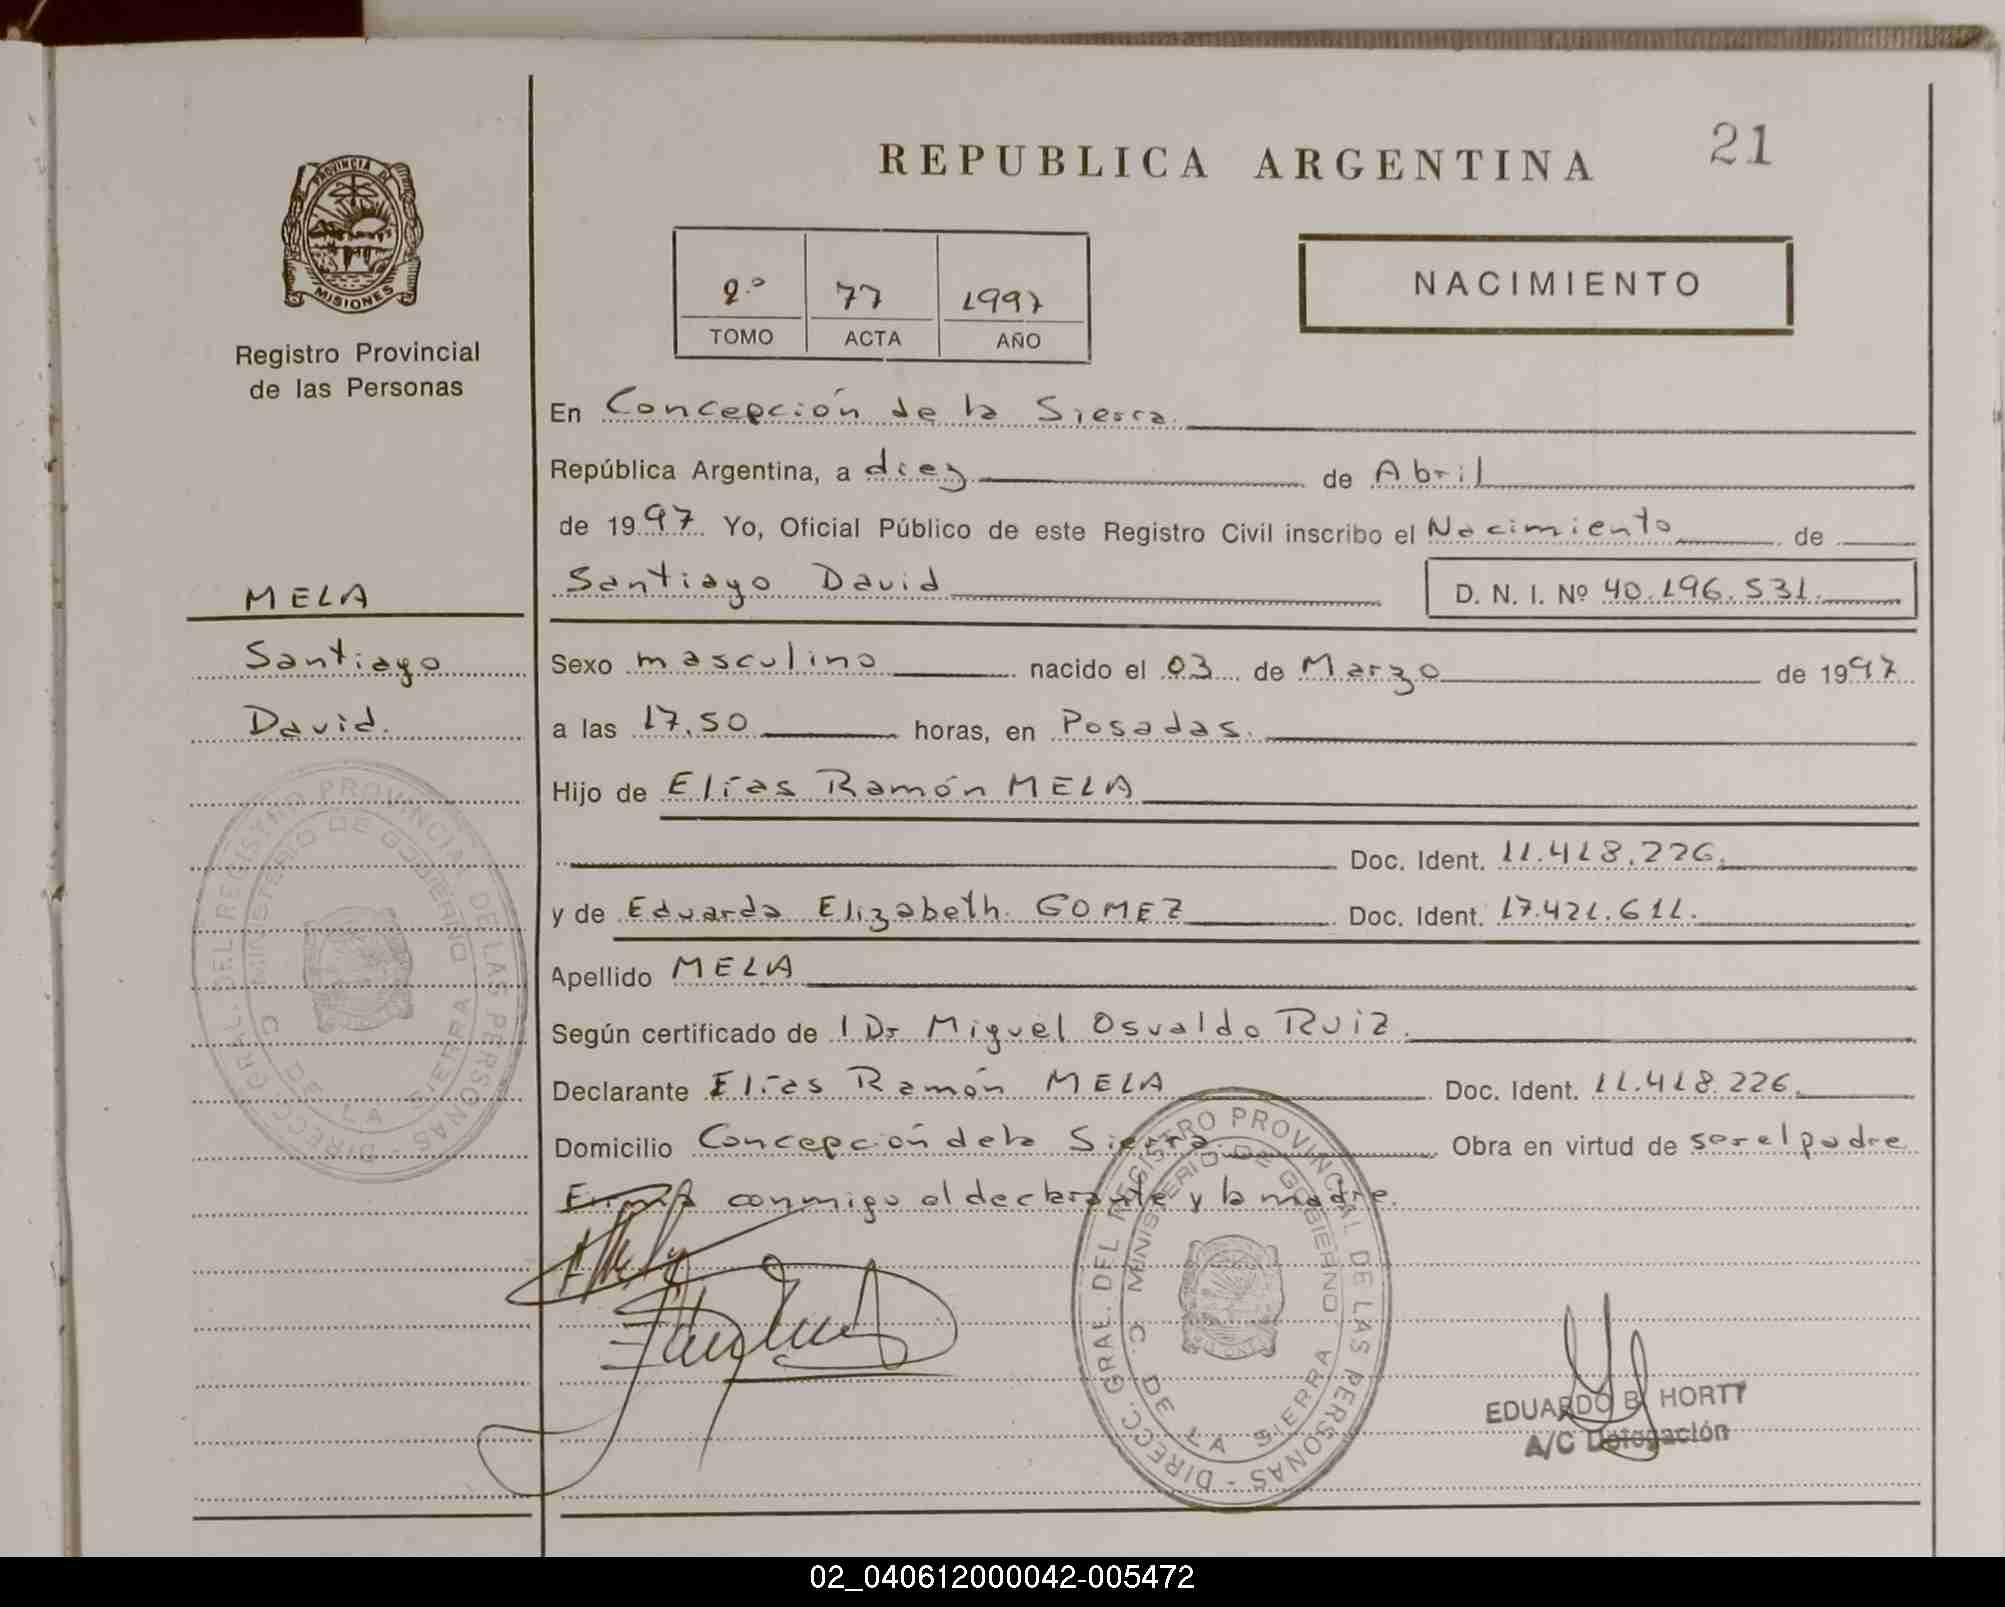 REPUBLICA ARGENTINA
21
PROVINCIA DE
MISIONES
Registro Provincial
de las Personas
2.º 77 1997
TOMO ACTA AÑO
NACIMIENTO
En Concepción de la Sierra.
República Argentina, a diez de Abril
de 1997. Yo, Oficial Público de este Registro Civil inscribo el Nacimiento de
Santiago David D. N. I. Nº 40.196.531.
MELA
Santiago
David.
Sexo masculino nacido el 03 de Marzo de 1997
a las 17.50 horas, en Posadas.
Hijo de Elías Ramón MELA
Doc. Ident. 11.418.226.
y de Eduarda Elizabeth GOMEZ Doc. Ident. 17.421.611.
Apellido MELA
Según certificado de l Dr Miguel Osvaldo RUIZ.
Declarante Elías Ramón MELA Doc. Ident. 11.418.226.
Domicilio Concepción de la Sierra. Obra en virtud de ser el padre
Firma conmigo el declarante y la madre.
DIRECC. GRAL. DEL REGISTRO PROVINCIAL DE LAS PERSONAS -
MINISTERIO DE GOBIERNO
C. DE LA SIERRA
DIRECC. GRAL. DEL REGISTRO PROVINCIAL DE LAS PERSONAS -
MINISTERIO DE GOBIERNO
C. DE LA SIERRA
EDUARDO B. HORTT
A/C Delegación
02_040612000042-005472